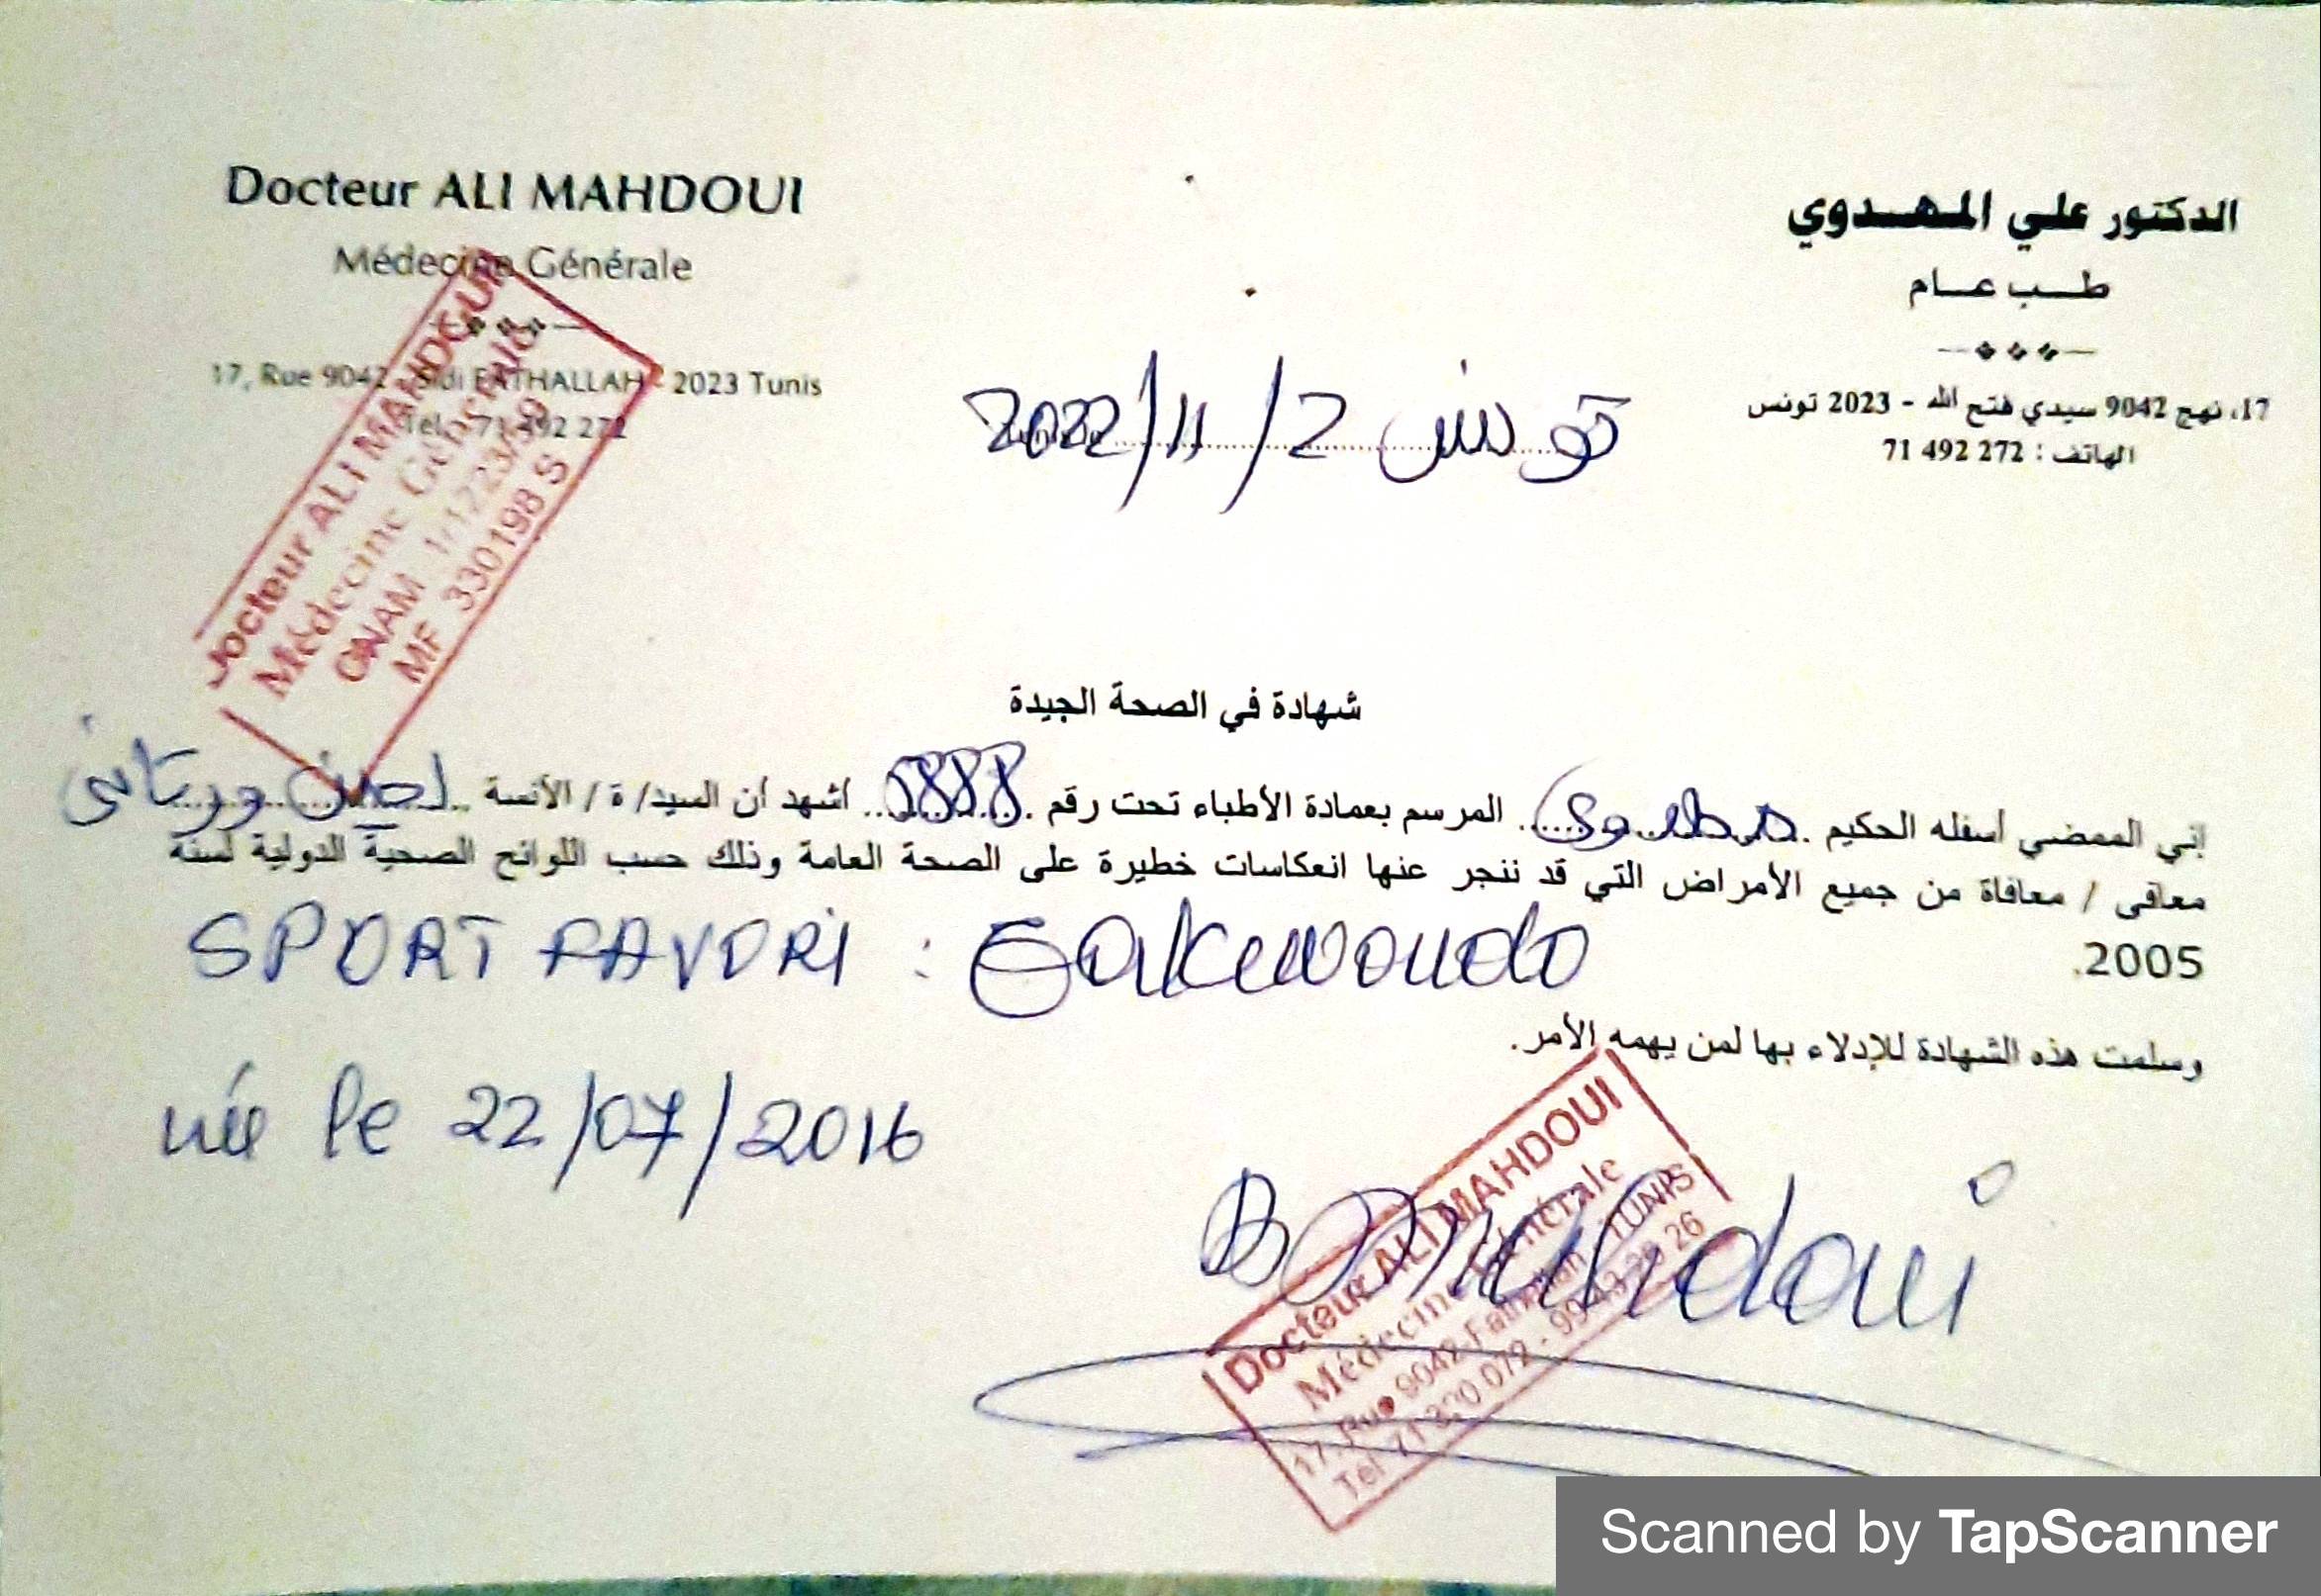 Docteur ALI MAHDOUI
Médecine Générale
17, Rue 9042 - Sidi FATHALLAH - 2023 Tunis
Tel. : 71 492 272
الدكتور علي المهدوي
طب عام
17، نهج 9042 سيدي فتح الله - 2023 تونس
الهاتف : 272 492 71
Docteur ALI MAHDOUI
Médecine Générale
CNAM
MF 330198 S
تونس 2/11/2022
شهادة في الصحة الجيدة
إني الممضي أسفله الحكيم المرسم بعمادة الأطباء تحت رقم أشهد أن السيد/ ة / الأنسة
معافى / معافاة من جميع الأمراض التي قد ننجر عنها انعكاسات خطيرة على الصحة العامة وذلك حسب اللوائح الصحية الدولية لسنة
2005.
SPORT FAVORI : Taekwondo
وسلمت هذه الشهادة للإدلاء بها لمن يهمه الأمر.
née le 22/07/2016
Docteur ALI MAHDOUI
Médecine Générale
17, Rue 9042 Fathallah - TUNIS
Scanned by TapScanner